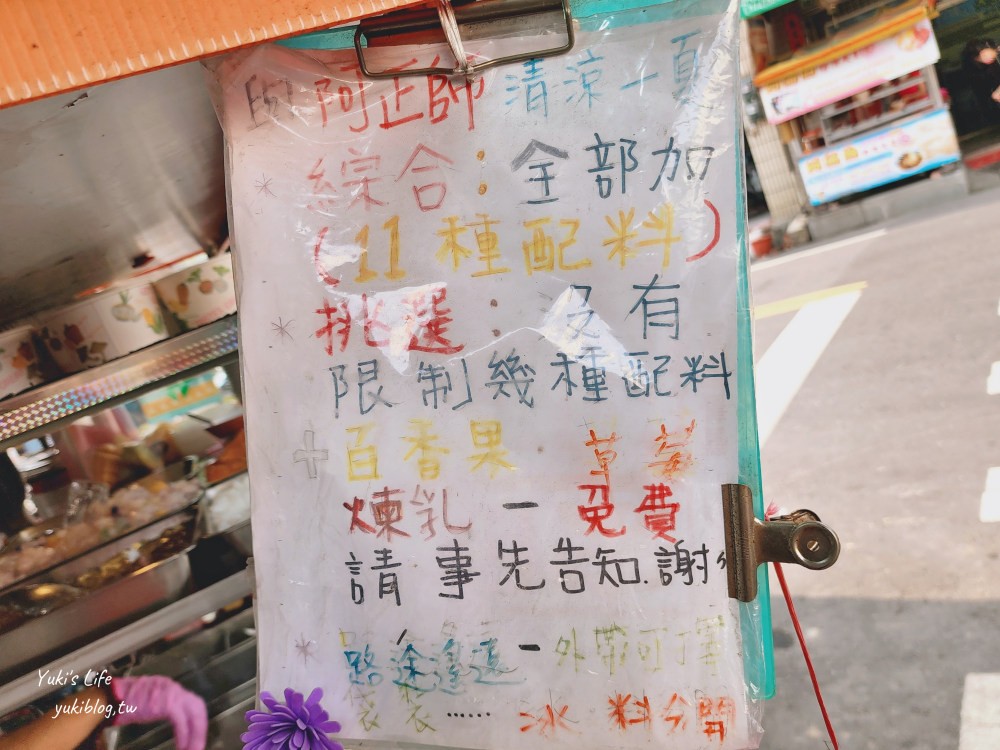 與阿正師清涼一夏
* 綜合：全部加
(11種配料)
* 挑選：沒有
限制幾種配料
+百香果 草莓
煉乳－免費
請事先告知.謝
* 路途遙遠－外帶可丁罩
袋袋……冰料分開
Yuki's Life
yukiblog.tw